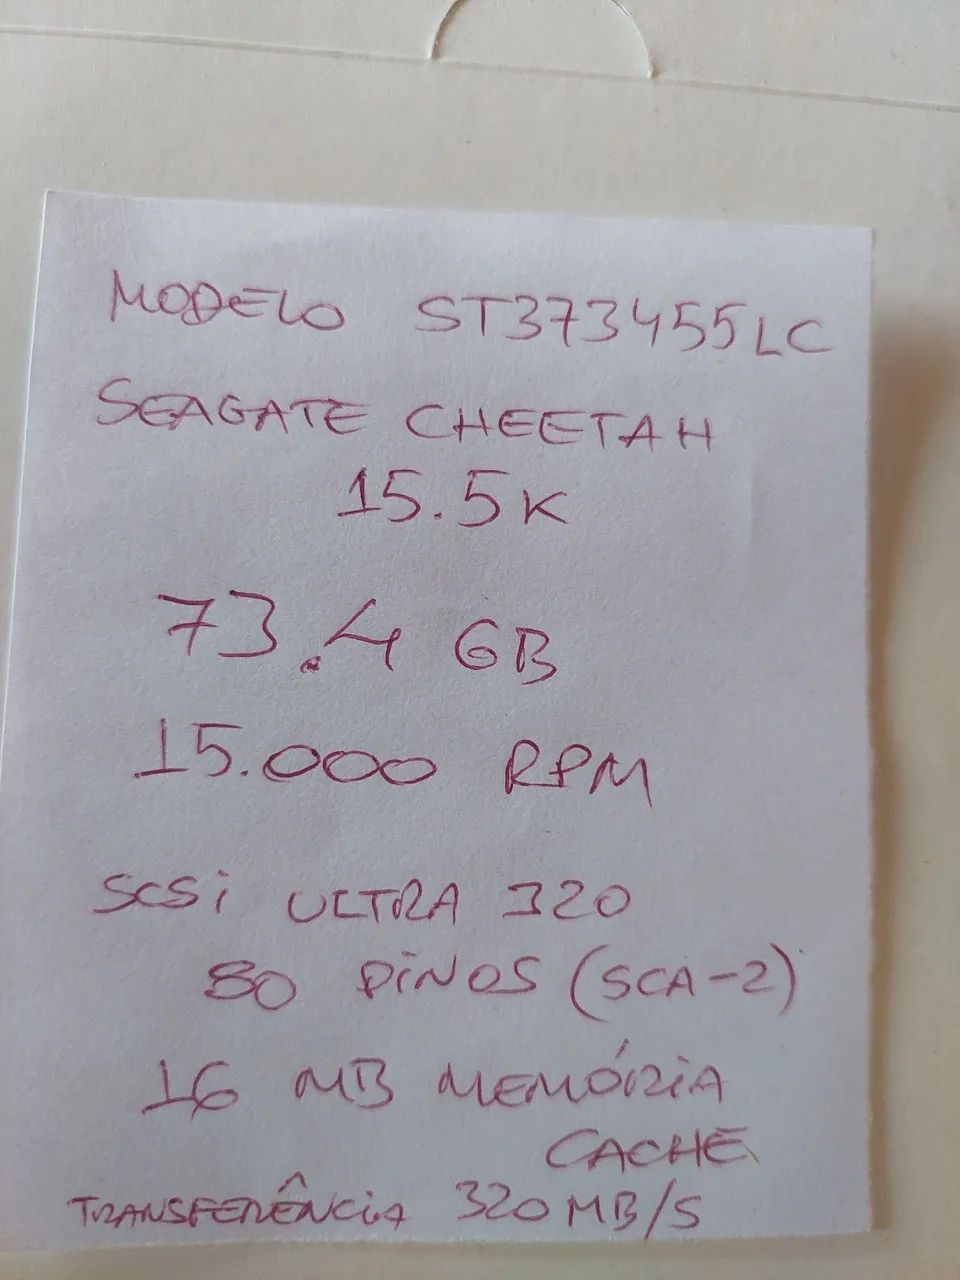 MODELO ST373455LC
SEAGATE CHEETAH
15.5K
73.4 GB
15.000 RPM
SCSi ULTRA 320
80 PiNOS (SCA-2)
16 MB MEMÓRiA
CACHE
TRANSFERÊNCiA 320MB/S